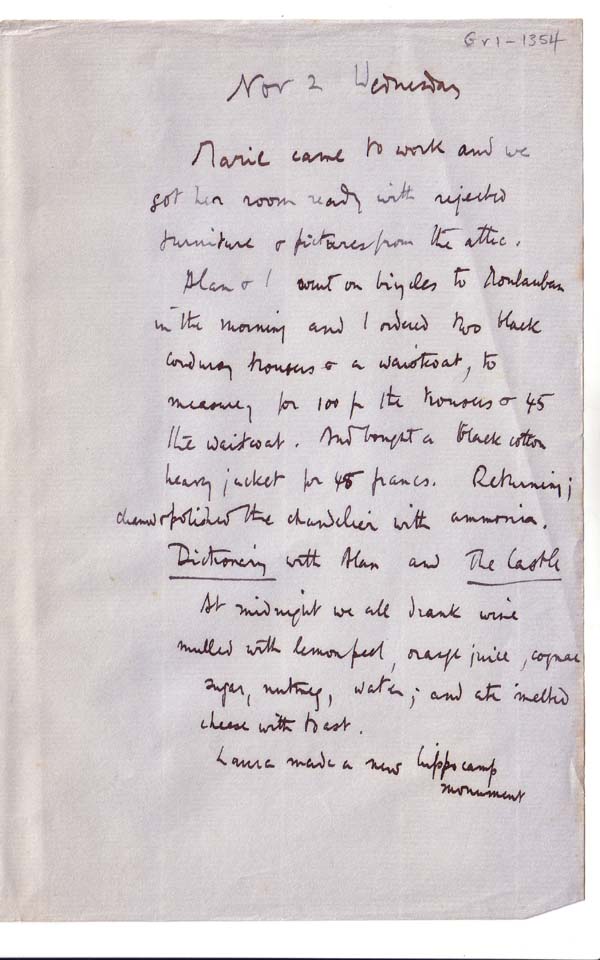 Gr1-1354
Nov 2 Wednesday
Marie came to work and we
got her room ready with rejected
furniture & pictures from the attic.
Alan & I went on bicycles to Montauban
in the morning and I ordered two black
corduroy trousers & a waistcoat, to
measure, for 100 fr the trousers & 45
the waistcoat. And bought a black cotton
heavy jacket for 48 francs. Returning;
cleaned & polished the chandelier with ammonia.
Dictionary with Alan and The Castle
At midnight we all drank wine
mulled with lemon peel, orange juice, cognac
sugar, nutmeg, water; and ate melted
cheese with toast.
Laura made a new hippocamp
monument